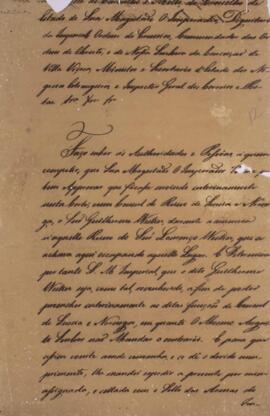 Estado de Sua Magestade O Imperador, Dignitario
da Imperial Ordem do Cruzeiro, Commendador das Or
dens de Christo, e de Nossa Senhora da Conceição de
Villa Viçosa, Ministro e Secretario d'Estado dos Ne
gocios Estrangeiros, e Inspector Geral dos Correios e
Faço saber ás Authoridades e Pessoas a quem
competir, que Sua Magestade O Imperador
bem Approvar que fique servindo interinamente
nesta Corte, como Consul do Reino de Suecia e Norue
ga, o Snr Guilherme Westin, durante a ausencia
d'aquelle Reino do Snr Lourenço Westin, que se
achava aqui occupando aquelle Lugar. E Determina
por tanto S. M. Imperial que o dito Guilherme
Westin seja, como tal, reconhecido, a fim de poder
preencher interinamente as ditas funcções de Consul
de Suecia e Noruega, em quanto O Mesmo Augus
to Senhor não Mandar o contrario. E para que
assim conste aonde convenha, e se dê o devido cum
primento, lhe mandei expedir a presente por mim
assignada, e sellada com o Sello das Armas do
Im-